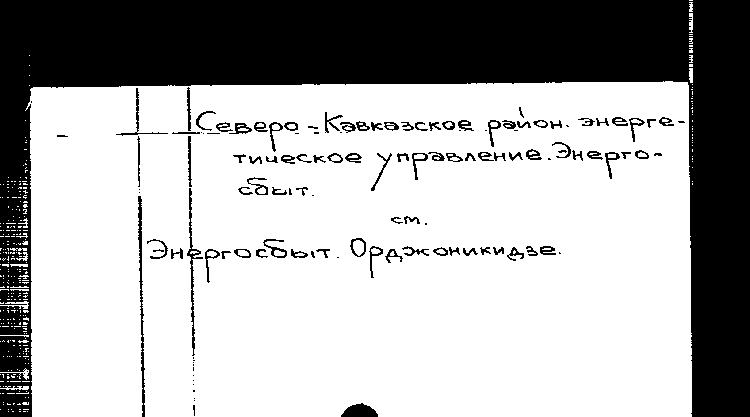 Северо-Кавказское район. энерге-
тическое управление. Энерго-
сбыт.
см.
Энергосбыт. Орджоникидзе.